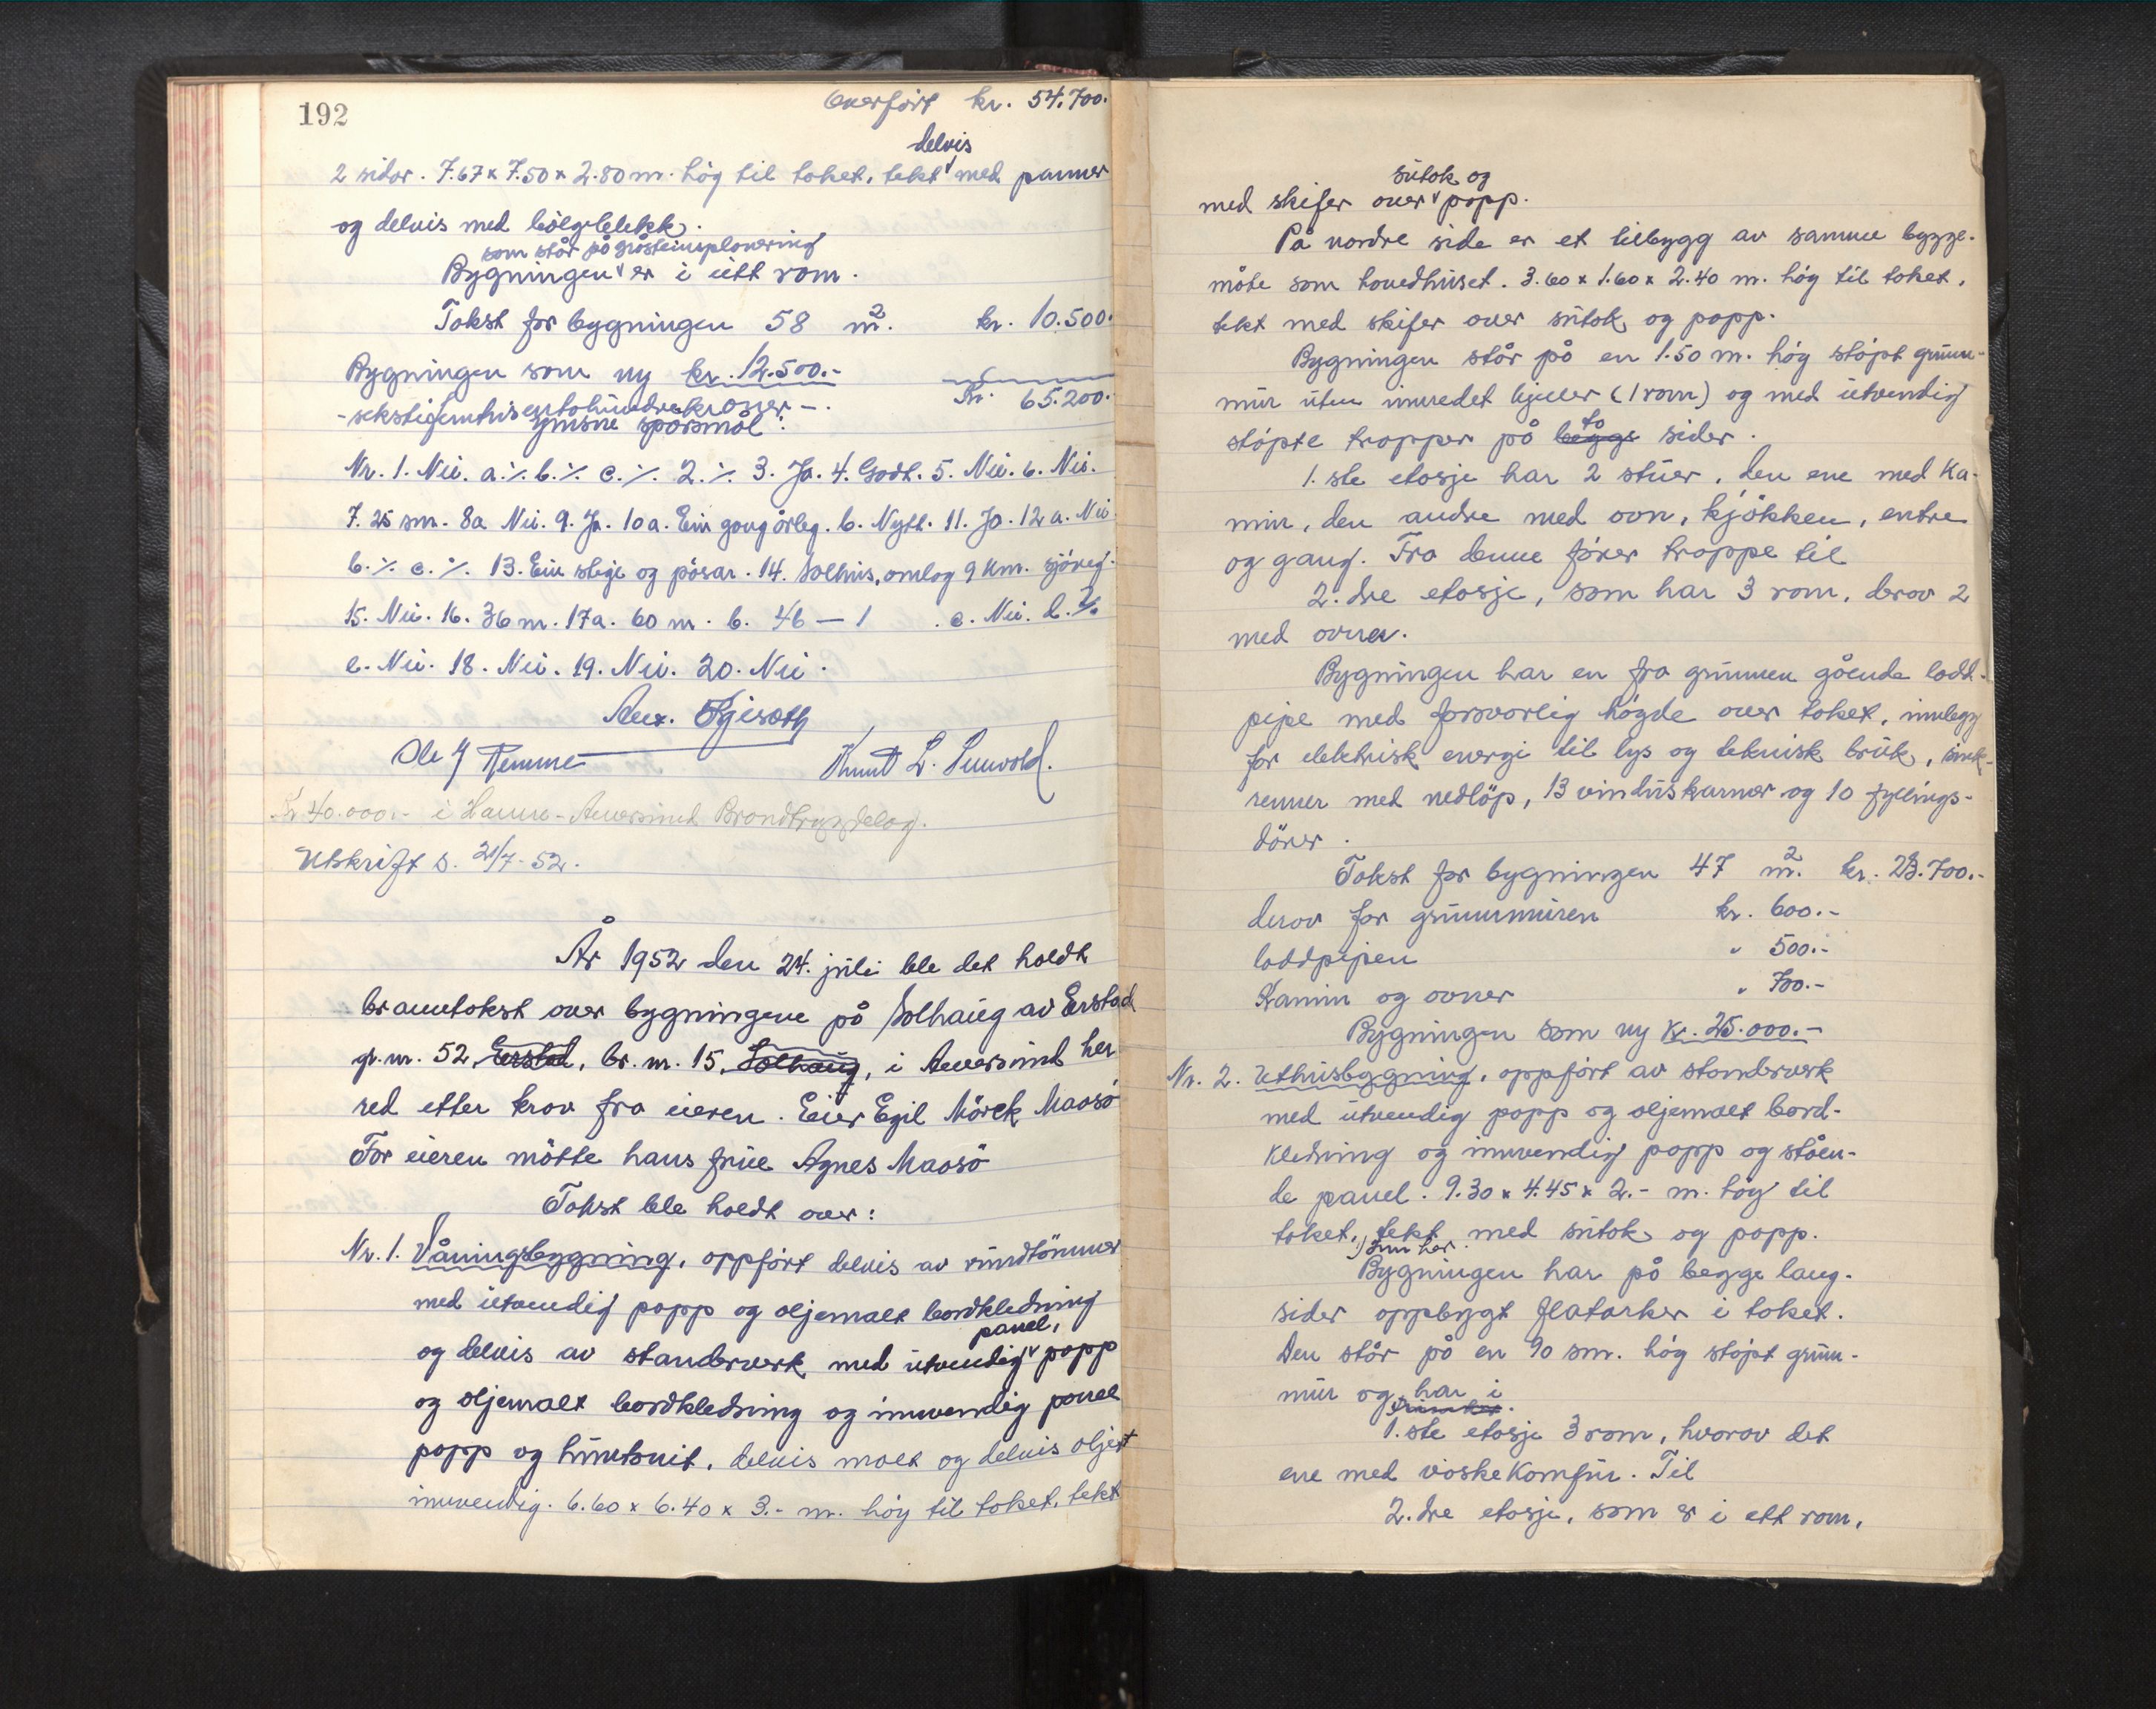 192
Overført kr. 54.700.
delvis
2 sidor. 7.67 x 7.50 x 2.80 m. høg til taket, tekt med panner
og delvis med bølgeblekk.
som står på gråsteinsplanering
Bygningen er i eitt rom.
Takst for bygningen 58 m². kr. 10.500.
Bygningen som ny kr. 12.500.-
Kr. 65.200.
- sekstifemtusentohundrekroner -.
Ymsne spørsmål:
Nr. 1. Nei. a. ٪ b. ٪ c. ٪ 2. ٪ 3. Ja. 4. Godt. 5. Nei. 6. Nei.
7. 25 sm. 8a Nei. 9. Ja. 10a. Ein gong årleg. b. Nytt. 11. Ja. 12 a. Nei
b. ٪ c. ٪ 13. Ein stige og pøsar. 14. Solhus, omlag 9 km. sjøveg.
15. Nei. 16. 36 m. 17a. 60 m. b. 46 — 1 . c. Nei. d. ٪
e. Nei. 18. Nei. 19. Nei. 20. Nei.
Knut L.
Kr 40.000.- i Hamre - Brandtrygdelag.
Utskrift s. 21/7-52.
År 1952 den 24. juli ble det holdt
branntakst over bygningene på Solhaug av Erstad
gr. nr. 52 Erstad, br. nr. 15, Solhaug, i her
red etter krav fra eieren. Eier Egil Mörck Maasö
For eieren møtte hans frue Agnes Maasö
Takst ble holdt over:
Nr. 1. Våningsbygning, oppført delvis av rundtömmer
med utvendig papp og oljemalt bordkledning
panel,
og delvis av standerverk med utvendig papp
og oljemalt bordkledning og innvendig panel
papp og huntonit, delvis malt og delvis oljet
innvendig. 6.60 x 6.40 x 3.- m. høg til taket, tekt
sutak og
med skifer over papp.
På nordre side er et tilbygg av samme bygge-
måte som hovedhuset. 3.60 x 1.60 x 2.40 m. høg til taket,
tekt med skifer over sutak og papp.
Bygningen står på en 1.50 m. høg støpt grunn-
mur uten innredet kjeller (1 rom) og med utvendig
to
støpte trapper på begge sider.
1. ste etasje har 2 stuer, den ene med ka-
min, den andre med ovn, kjøkken, entre
og gang. Fra denne fører trappe til
2. dre etasje, som har 3 rom, derav 2
med ovner.
Bygningen har en fra grunnen gående lodd-
pipe med forsvarlig høgde over taket, innlegg
for elektrisk energi til lys og teknisk bruk, sink-
renner med nedløp, 13 vinduskarmer og 10 fyllings-
dører.
Takst for bygningen 47 m². kr. 23.700.-
derav for grunnmuren kr. 600.-
loddpipen " 500.-
Kamin og ovner " 700.-
Bygningen som ny kr. 25.000.-
Nr. 2. Uthusbygning, oppført av standerverk
med utvendig papp og oljemalt bord-
kledning og innvendig papp og ståen-
de panel. 9.30 x 4.45 x 2.- m. høg til
taket, tekt med sutak og papp.
Bygningen har på begge lang-
sider oppbygt flatarker i taket.
Den står på en 90 sm. høg støpt grunn-
mur og har i
1. ste etasje 3 rom, hvorav det
ene med vaskekomfur. Til
2. dre etasje, som er i ett rom,